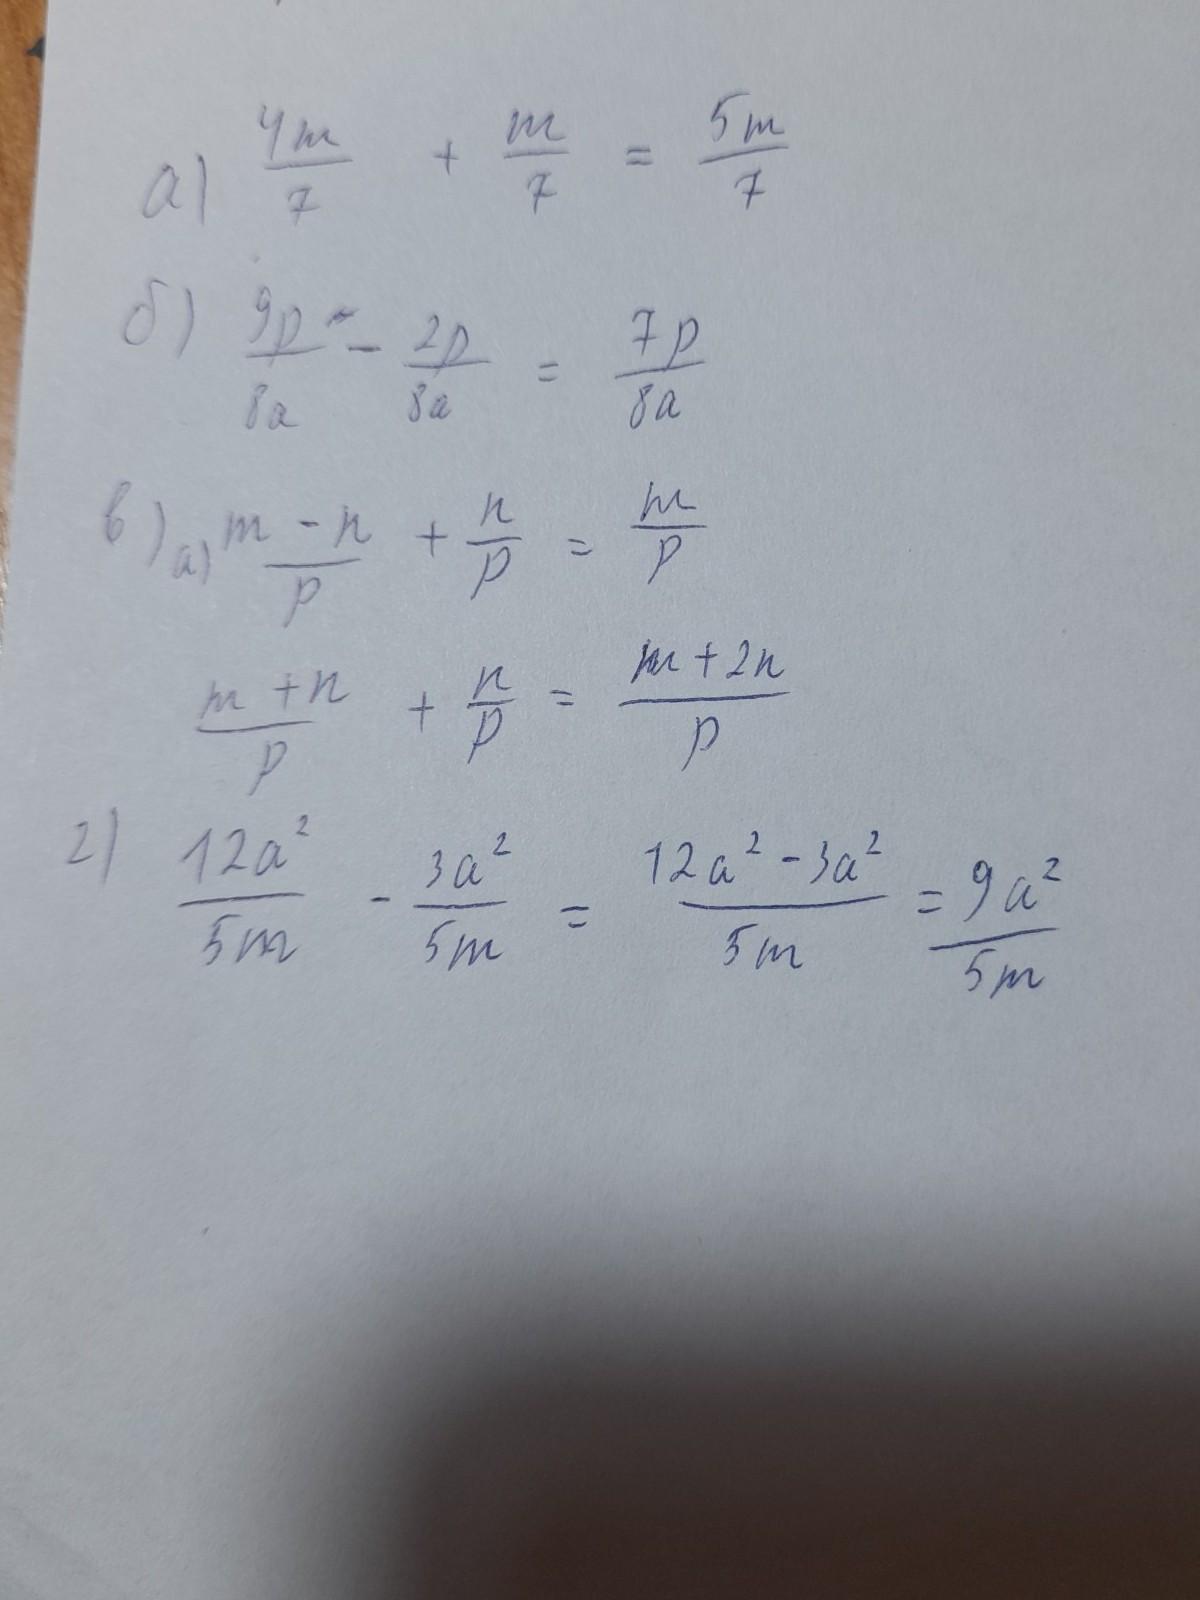 а) 4m/7 + m/7 = 5m/7
б) 9p/8a - 2p/8a = 7p/8a
в) а) m - n/p + n/p = m/p
m + n/p + n/p = m + 2n/p
г) 12a²/5m - 3a²/5m = 12a² - 3a²/5m = 9a²/5m